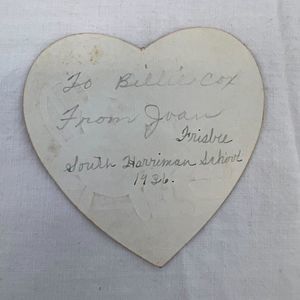 To Billie Cox
From Joan
Frisbie
South Harriman School
1936.